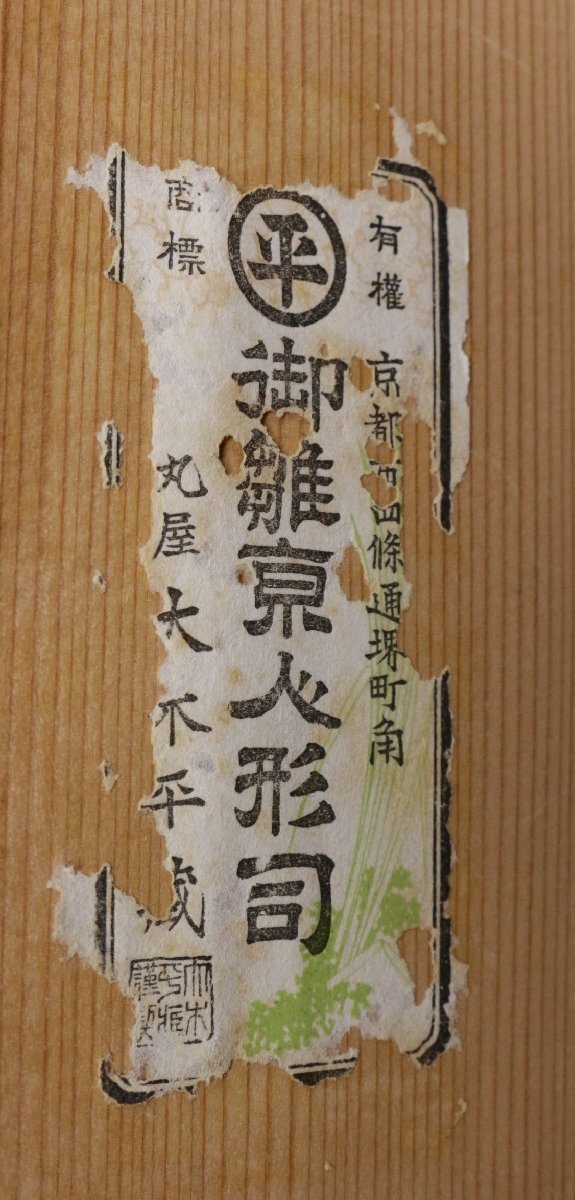 有權 京都市四條通堺町角
平
御雛京人形司
商標
丸屋 大木平藏
大木平藏謹製